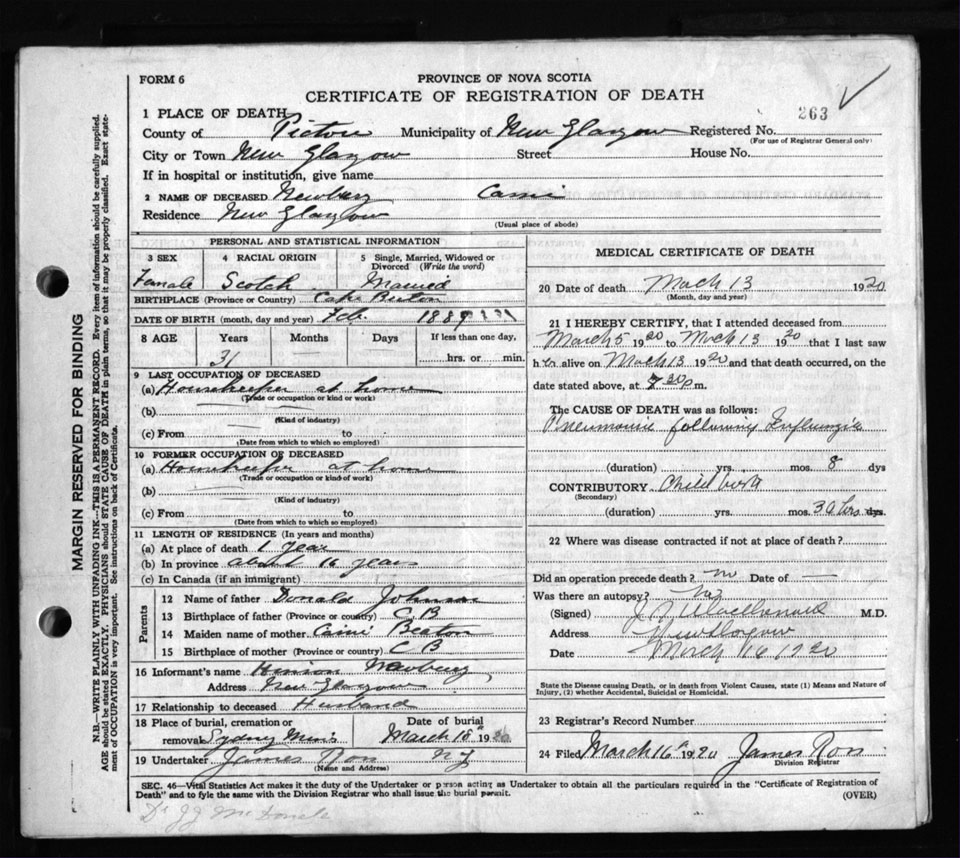 FORM 6
PROVINCE OF NOVA SCOTIA
CERTIFICATE OF REGISTRATION OF DEATH
263
1 PLACE OF DEATH
County of Pictou Municipality of New Glasgow Registered No.
(For use of Registrar General only)
City or Town New Glasgow Street House No.
If in hospital or institution, give name
2 NAME OF DECEASED Newbury Cassie
Residence New Glasgow
(Usual place of abode)
PERSONAL AND STATISTICAL INFORMATION
3 SEX 4 RACIAL ORIGIN 5 Single, Married, Widowed or Divorced (Write the word)
Female Scotch Married
BIRTHPLACE (Province or Country) Cape Breton
DATE OF BIRTH (month, day and year) Feb. 1889
8 AGE Years Months Days If less than one day,
31 hrs. or min.
9 LAST OCCUPATION OF DECEASED
(a) Housekeeper at home
(Trade or occupation or kind or work)
(b)
(Kind of industry)
(c) From to
(Date from which to which so employed)
10 FORMER OCCUPATION OF DECEASED
(a) Housekeeper at home
(Trade or occupation or kind of work)
(b)
(Kind of industry)
(c) From to
(Date from which to which so employed)
11 LENGTH OF RESIDENCE (In years and months)
(a) At place of death 1 year
(b) In province about 16 years
(c) In Canada (if an immigrant)
Parents
12 Name of father Donald Johnson
13 Birthplace of father (Province or country) C B
14 Maiden name of mother Beaton
15 Birthplace of mother (Province or country) C B
16 Informant's name Newbury
Address New Glasgow
17 Relationship to deceased Husband
18 Place of burial, cremation or removal Sydney Mines Date of burial March 18 1920
19 Undertaker James Ross N G
(Name and Address)
MEDICAL CERTIFICATE OF DEATH
20 Date of death Mach 13 1920
(Month, day and year)
21 I HEREBY CERTIFY, that I attended deceased from
March 5 1920 to Mach 13 1920 that I last saw
h er alive on Mach 13 1920 and that death occurred, on the
date stated above, at 7 30 p m.
The CAUSE OF DEATH was as follows:
Pneumonia following Influenza
(duration) yrs. mos. 8 dys
CONTRIBUTORY Child birth
(Secondary)
(duration) yrs. mos. 36 hrs dys.
22 Where was disease contracted if not at place of death?
Did an operation precede death? no Date of —
Was there an autopsy? no
(Signed) J J MacDonald M.D.
Address New Glasgow
Date March 16 1920
State the Disease causing Death, or in death from Violent Causes, state (1) Means and Nature of
Injury, (2) whether Accidental, Suicidal or Homicidal.
23 Registrar's Record Number
24 Filed March 16 1920 James Ross
Division Registrar
SEC. 46—Vital Statistics Act makes it the duty of the Undertaker or person acting as Undertaker to obtain all the particulars required in the "Certificate of Registration of
Death" and to fyle the same with the Division Registrar who shall issue the burial permit. (OVER)
Dr J J McDonald
MARGIN RESERVED FOR BINDING
N.B.—WRITE PLAINLY WITH UNFADING INK—THIS IS A PERMANENT RECORD. Every item of information should be carefully supplied.
AGE should be stated EXACTLY. PHYSICIANS should STATE CAUSE OF DEATH in plain terms, so that it may be properly classified. Exact statement of OCCUPATION is very important. See instructions on back of Certificate.